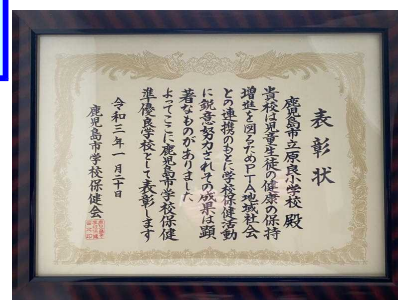 表彰状
鹿児島市立原良小学校 殿
貴校は児童生徒の健康の保持
増進を図るためPTA地域社会
との連携のもとに学校保健活動
に鋭意努力されその成果は顕
著なものがありました
よってここに鹿児島市学校保健
準優良学校として表彰します
令和三年一月二十日
鹿児島市学校保健会